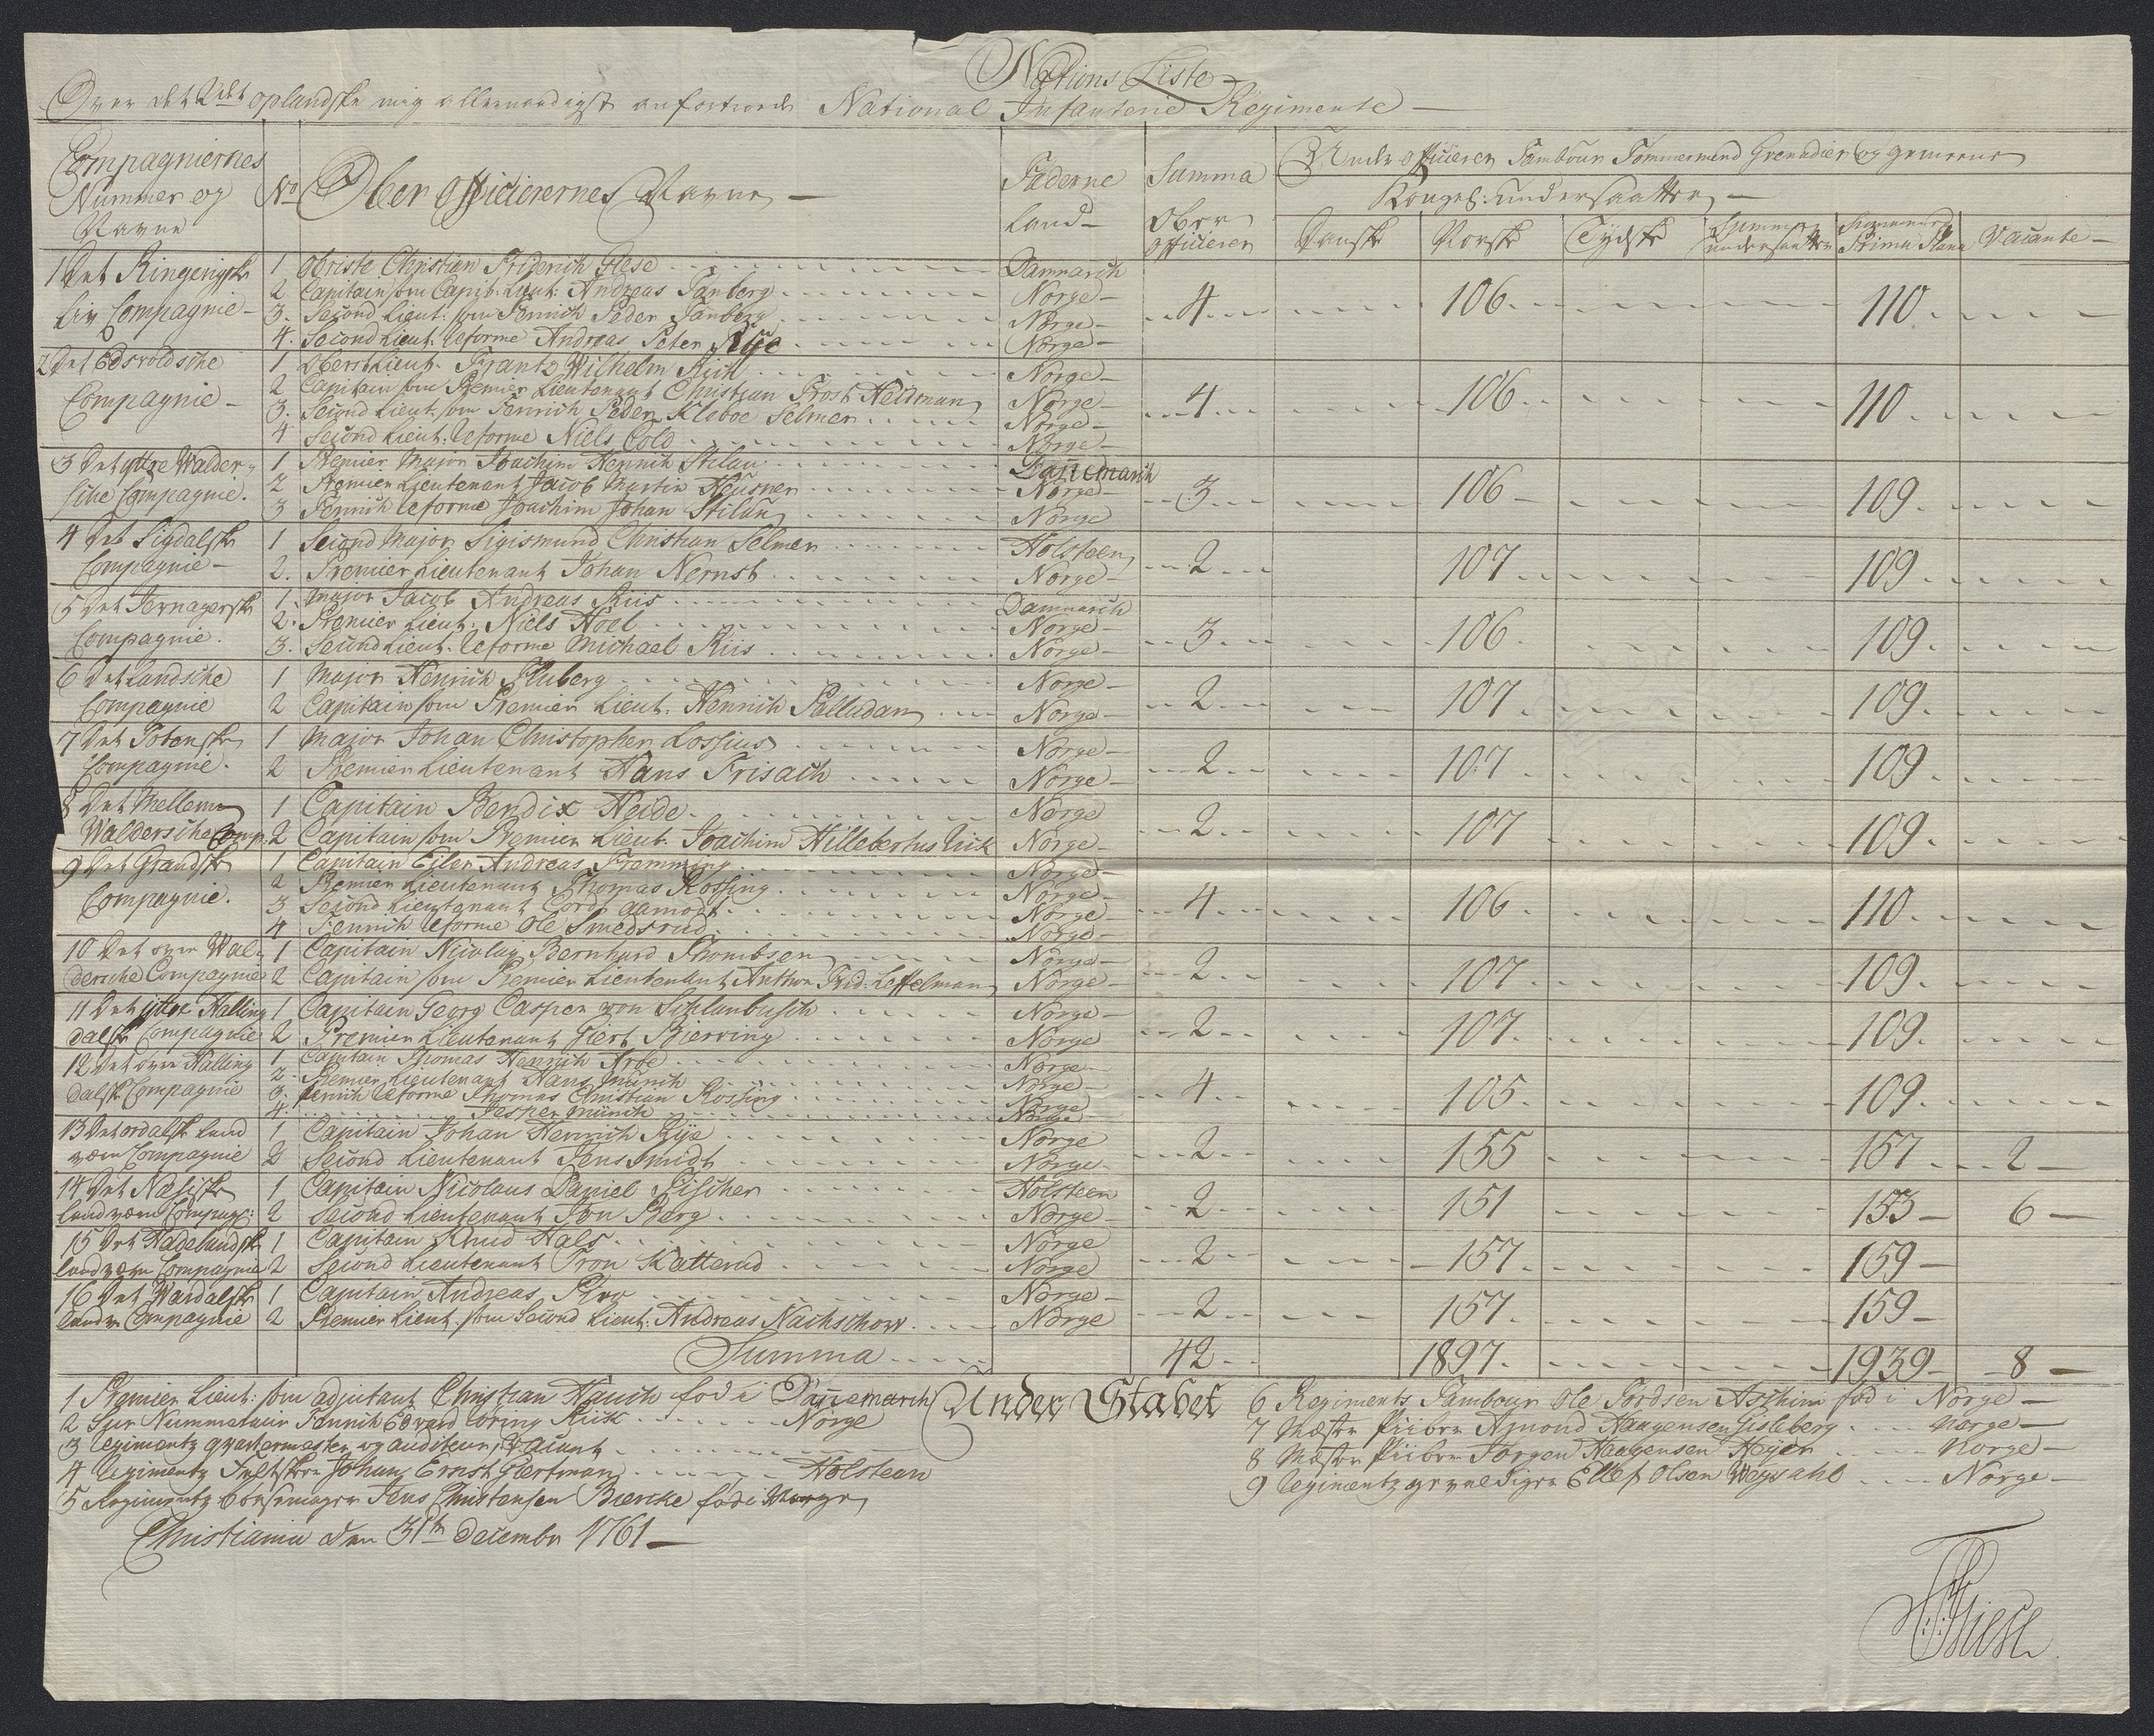 Nations Liste
Over det 2det oplandske mig allernaadigst anfortroede National Infanterie Regimente
Compagniernes Nummer og Navne
No
Ober Officierernes Navne
Fæderne Land
Summa Ober Officierer
Under officierer Tambour Tømmermend Grenadier og gemeene
Kongel: undersaatter
Danske Norske Tydske Summa undersaatter Summa Prima Plana Vacante
1 Det Ringerigske Liv Compagnie
1 Obriste Christian Friderich Giese Dannarch
2 Capitain som Capit: Lieut: Andreas Tanberg Norge 4 106 110
3. Second Lieut: som Fenrich Peder Tanberg Norge
4. Second Lieut: Reforme Andreas Peter Rye Norge
2 Det Edsvoldsche Compagnie
1 Oberst Lieut. Frantz Wilhelm Rich Norge
2 Capitain som Premier Lieutenant Christian Frost Heidman Norge 4 106 110
3. Second Lieut som Fenrich Peder Kloboe Selmer Norge
4 Second Lieut: Reforme Niels Cold Norge
3 Det yttre Walder-sche Compagnie.
1 Premier Major Joachim Henrich Stilau Dannemarch
2 Premier Lieutenant Jacob Martin Heusner Norge 3 106 109
3 Fenrich Reforme Joachim Johan Stilau Norge
4 Det Sigdalske Compagnie
1 Second Major Sigismund Christian Selmer Holsteen 2 107 109
2. Premier Lieutenant Johan Nernst Norge
5 Det Jernagerske Compagnie.
1. Major Jacob Andreas Riis Dannarch
2. Premier Lieut: Niels Hoel Norge 3 106 109
3. Second Lieut. Reforme Michael Riis Norge
6 Det Landsche Compagnie
1 Major Henrich Huberg Norge
2 Capitain som Premier Lieut. Henrich Palludan Norge 2 107 109
7 Det Totenske Compagnie.
1 Major Johan Christopher Lossius Norge
2 Premier Lieutenant Hans Frisach Norge 2 107 109
8 Det Mellem Waldersche Comp:
1 Capitain Bendix Heide Norge
2 Capitain som Premier Lieut. Joachim Hillebertus Rick Norge 2 107 109
9 Det Grandske Compagnie.
1 Capitain Eiler Andreas Fremming Norge
2 Premier Lieutenant Thomas Rossing Norge
3 Second Lieutenant Cord Aamodt Norge 4 106 110
4 Fenrich Reforme Ole Smedsrud Norge
10 Det over Wal-dersche Compagnie
1 Capitain Nicolay Bernhard Thombsen Norge
2 Capitain som Premier Lieutenant Anthon Frid: Leffelman Norge 2 107 109
11 Det yttre Halling dalske Compagnie
1 Capitain Georg Casper von Schlanbusch Norge
2 Premier Lieutenant Giert Bierring Norge 2 107 109
12 Det over Halling dalske Compagnie
1 Capitain Thomas Henrich Aroe Norge
2 Premier Lieutenant Hans Munch Norge 4 105 109
3. Fenrich Reforme Thomas Christian Rossing Norge
4. Jesper Munch Norge
13 Det ordalske Land værn Compagnie
1 Capitain Johan Henrich Rye Norge
2 Second Lieutenant Jens Smidt Norge 2 155 157 2
14 Det Nasiske Landværn Compag:
1 Capitain Nicolaus Daniel Fischer Holsteen
2 Second Lieutenant Jon Berg Norge 2 151 153 6
15 Det Hadelandske Landværn Compagnie
1 Capitain Knud Hals Norge
2 Second Lieutenant Tron Katterud Norge 2 157 159
16 Det Wardalske Landv: Compagnie
1 Capitain Andreas Stro Norge
2 Premier Lieut. som Second Lieut: Andreas Nachschow Norge 2 157 159
Summa 42 1897 1939 8
Under Stabet
1 Premier Lieut: som adjutant Christian Hauch fød i Dannemarch
2 Sur Nummerair Fennich Edvard Loring Rick Norge
3 Regiments qvartermester og auditeur, Vacant
4 Regiments Feltskier Johan Ernst Giertman Holsteen
5 Regiments Bøssemager Jens Christensen Biercke fød i Norge
6 Regiments Tambour Ole Tordsen Aschim fød i Norge
7 Mæster Piiber Amond Haagensen Gisleberg Norge
8 Mæster Piiber Jörgen Haagensen Heyer Norge
9 Regiments gevaldiger Ellef Olsen Weysahl Norge
Christiania den 31te December 1761
CFGiese